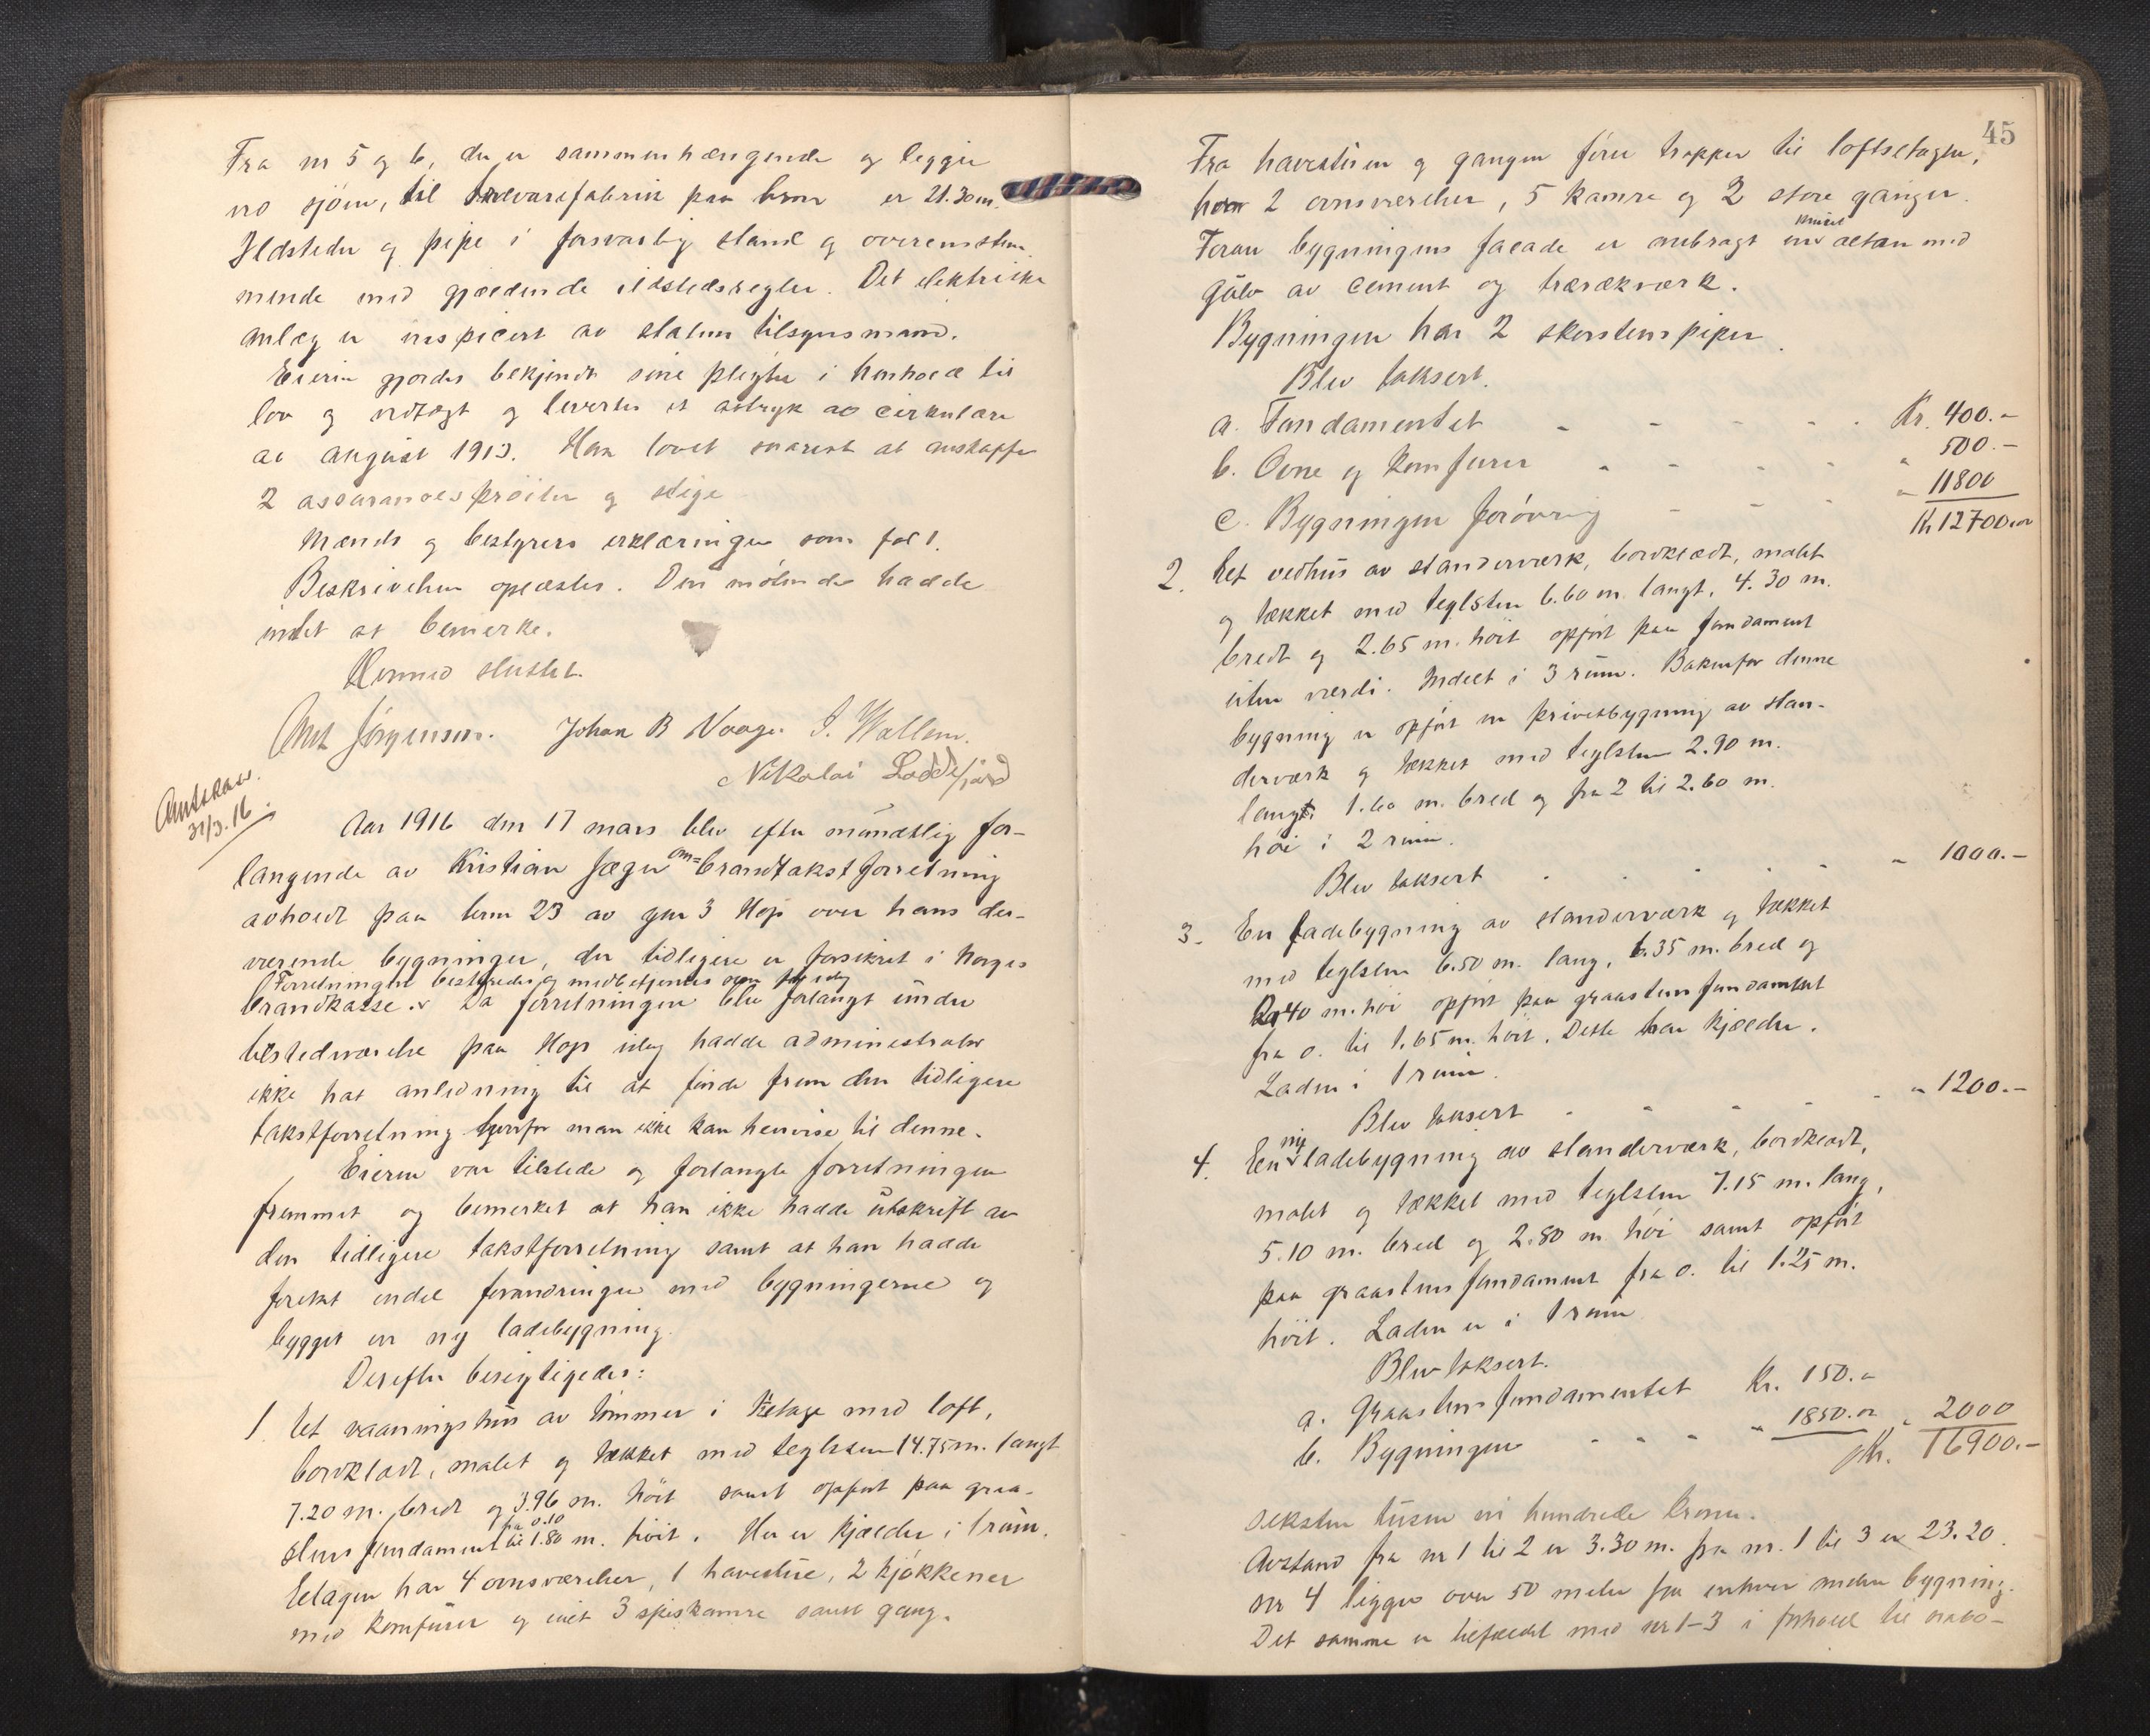 Fra nr 5 og 6, der er sammenhængende og ligger
ved sjöen, til trævarefabrik paa er 21.30 m.
Ildsteder og pipe i forsvarlig stand og overensstem-
mende med gjældende ildstedsregler. Det elektriske
anlæg er inspicert av statens tilsynsmand.
Eieren gjordes bekjendt sine pligter i henhold til
lov og vedtægt og levertes et avtryk av cirkulære
av august 1913. Han lovet snarest at anskaffe
2 assurancespröiter og stige
Mænds og bestyrers erklæringer som fol 1.
Beskrivelsen oplæstes. Den mötende hadde
intet at bemerke.
Hermed sluttet.
Ant Jörgensen. Johan B Vaage. J. Wallem.
Nikolai Loddefjord
Avskr.
31/3.16
Aar 1916 den 17 mars blev efter mundtlig for-
langende av Kristian Jæger om= brandtakstforretning
avholdt paa brnr 23 av gnr 3 Hop over hans der-
værende bygninger, der tidligere er forsikret i Norges
Forretningen bestyredes og medbetjentes som
brandkasse. Da forretningen blev forlangt under
tilstedeværelse paa Hop idag hadde administrator
ikke hat anledning til at finde frem den tidligere
takstforretning hvorfor man ikke kan henvise til denne.
Eieren var tilstede og forlangte forretningen
fremmet og bemerket at han ikke hadde utskrift av
den tidligere takstforretning samt at han hadde
foretat endel forandringer med bygningerne og
bygget en ny ladebygning.
Derefter besigtigedes:
1 Et vaaningshus av tömmer i 1 etage med loft,
bordklædt, malet og tækket med teglsten 14.75 m. langt
7.20 m. bredt og 3.96 m. höit samt opfört paa graa-
stensfundament fra 0.10 til 1.80 m. höit. Her er kjælder i 1 rum.
Etagen har 4 ovnsværelser, 1 havestue, 2 kjökkener
med komfurer og 3 spiskamre samt gang.
45
Fra havestuen og gangen förer trapper til loftsetagen,
hvor 2 ovnsværelser, 5 kamre og 2 store ganger.
Foran bygningens facade er anbragt en muret altan med
gulv av cement og trærækværk.
Bygningen har 2 skorstenspiper.
Blev taksert.
a. Fundamentet - - - - - Kr. 400.-
b. Ovne og komfurer - - - - " 500.-
c. Bygningen forövrig - - - " 11800
Kr 12700.00
2. Et vedhus av standerværk, bordklædt, malet
og tækket med teglsten 6.60 m. langt, 4.30 m.
bredt og 2.65 m. höit opfört paa fundament
uten værdi. Inddelt i 3 rum. Bakenfor denne
bygning er opfört en privetbygning av stan-
derværk og tækket med teglsten 2.90 m.
lang, 1.60 m. bred og fra 2 til 2.60 m.
höi i 2 rum.
Blev taksert - - - - " 1000.-
3. En ladebygning av standerværk og tækket
med teglsten 6.50 m. lang, 6.35 m. bred og
2.40 m. höi opfört paa graastensfundament
fra 0. til 1.65 m. höit. Dette har kjælder.
Laden i 1 rum.
Blev taksert - - - - - " 1200.-
4. En ny ladebygning av standerværk, bordklædt,
malet og tækket med teglsten 7.15 m. lang,
5.10 m. bred og 2.80 m höi samt opfört
paa graastensfundament fra 0. til 1.25 m.
höit. Laden er i 1 rum
Blev taksert.
a. Graastensfundamentet Kr. 150.-
b. Bygningen - - - - " 1850.00 " 2000
Kr. 16900.-
seksten tusen ni hundrede kroner.
Avstand fra nr 1 til 2 er 3.30 m. fra nr. 1 til 3 er 23.20.
nr 4 ligger over 50 meter fra enhver anden bygning.
Det samme er tilfældet med nr 1-3 i forhold til nabo-